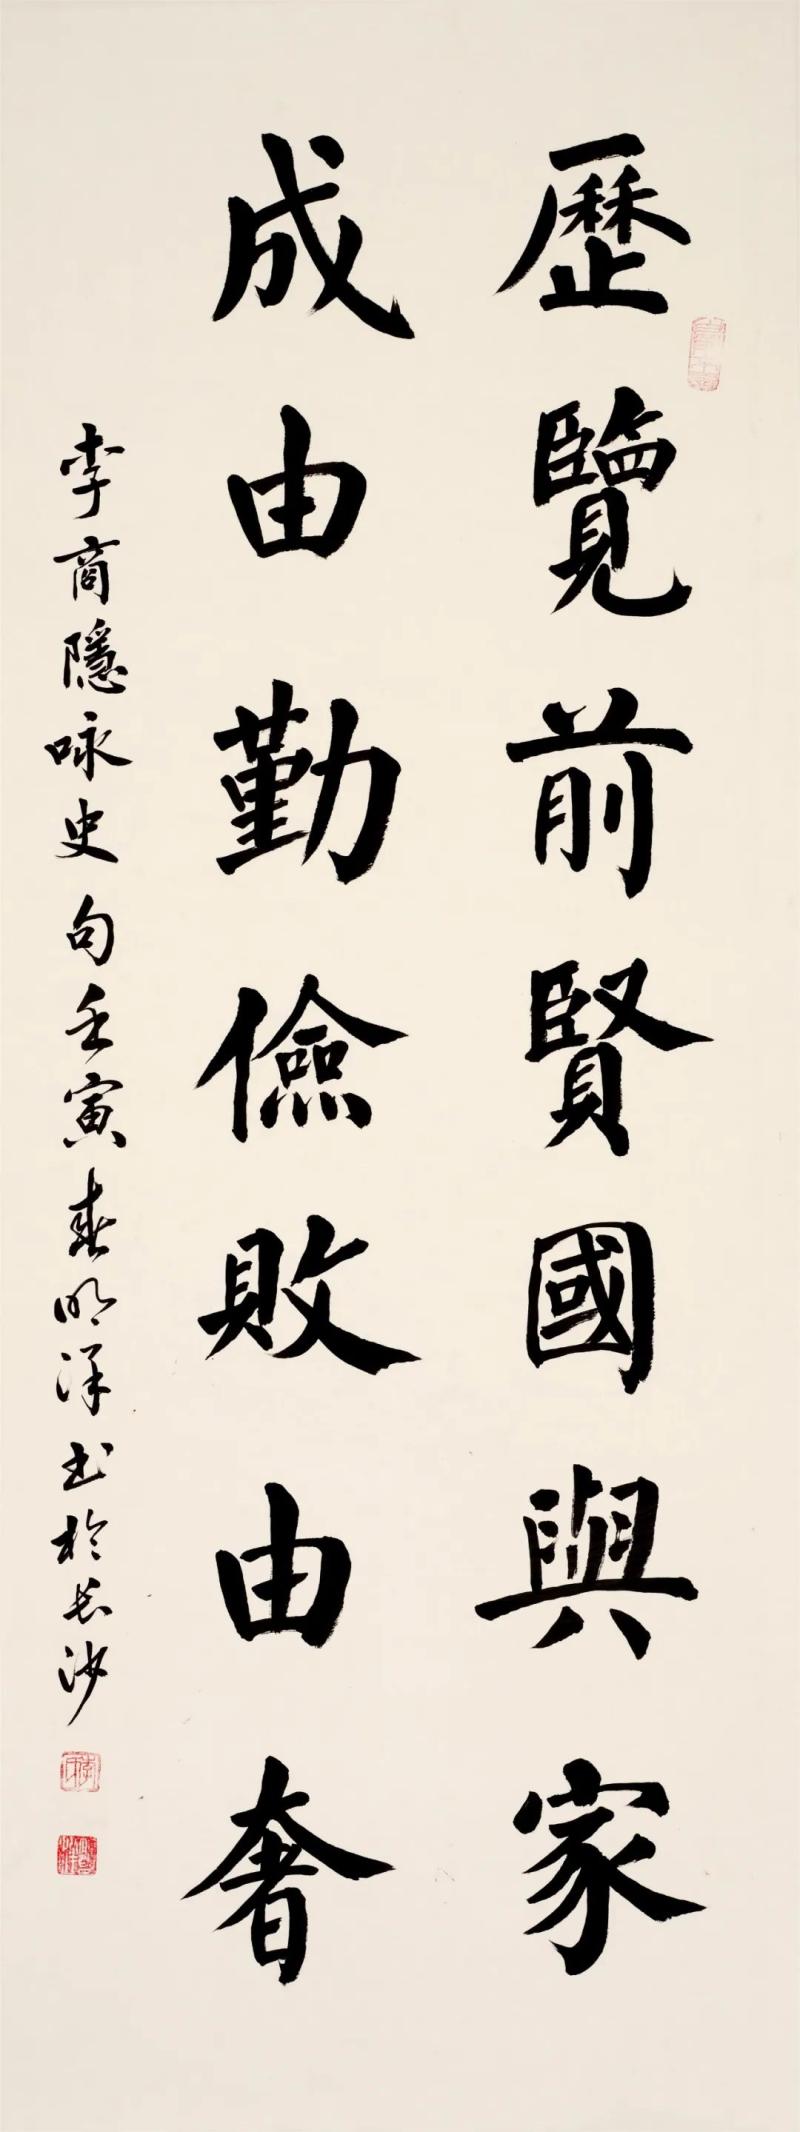 歷覽前賢國與家
成由勤儉敗由奢
李商隱咏史句壬寅春明洋書於長沙